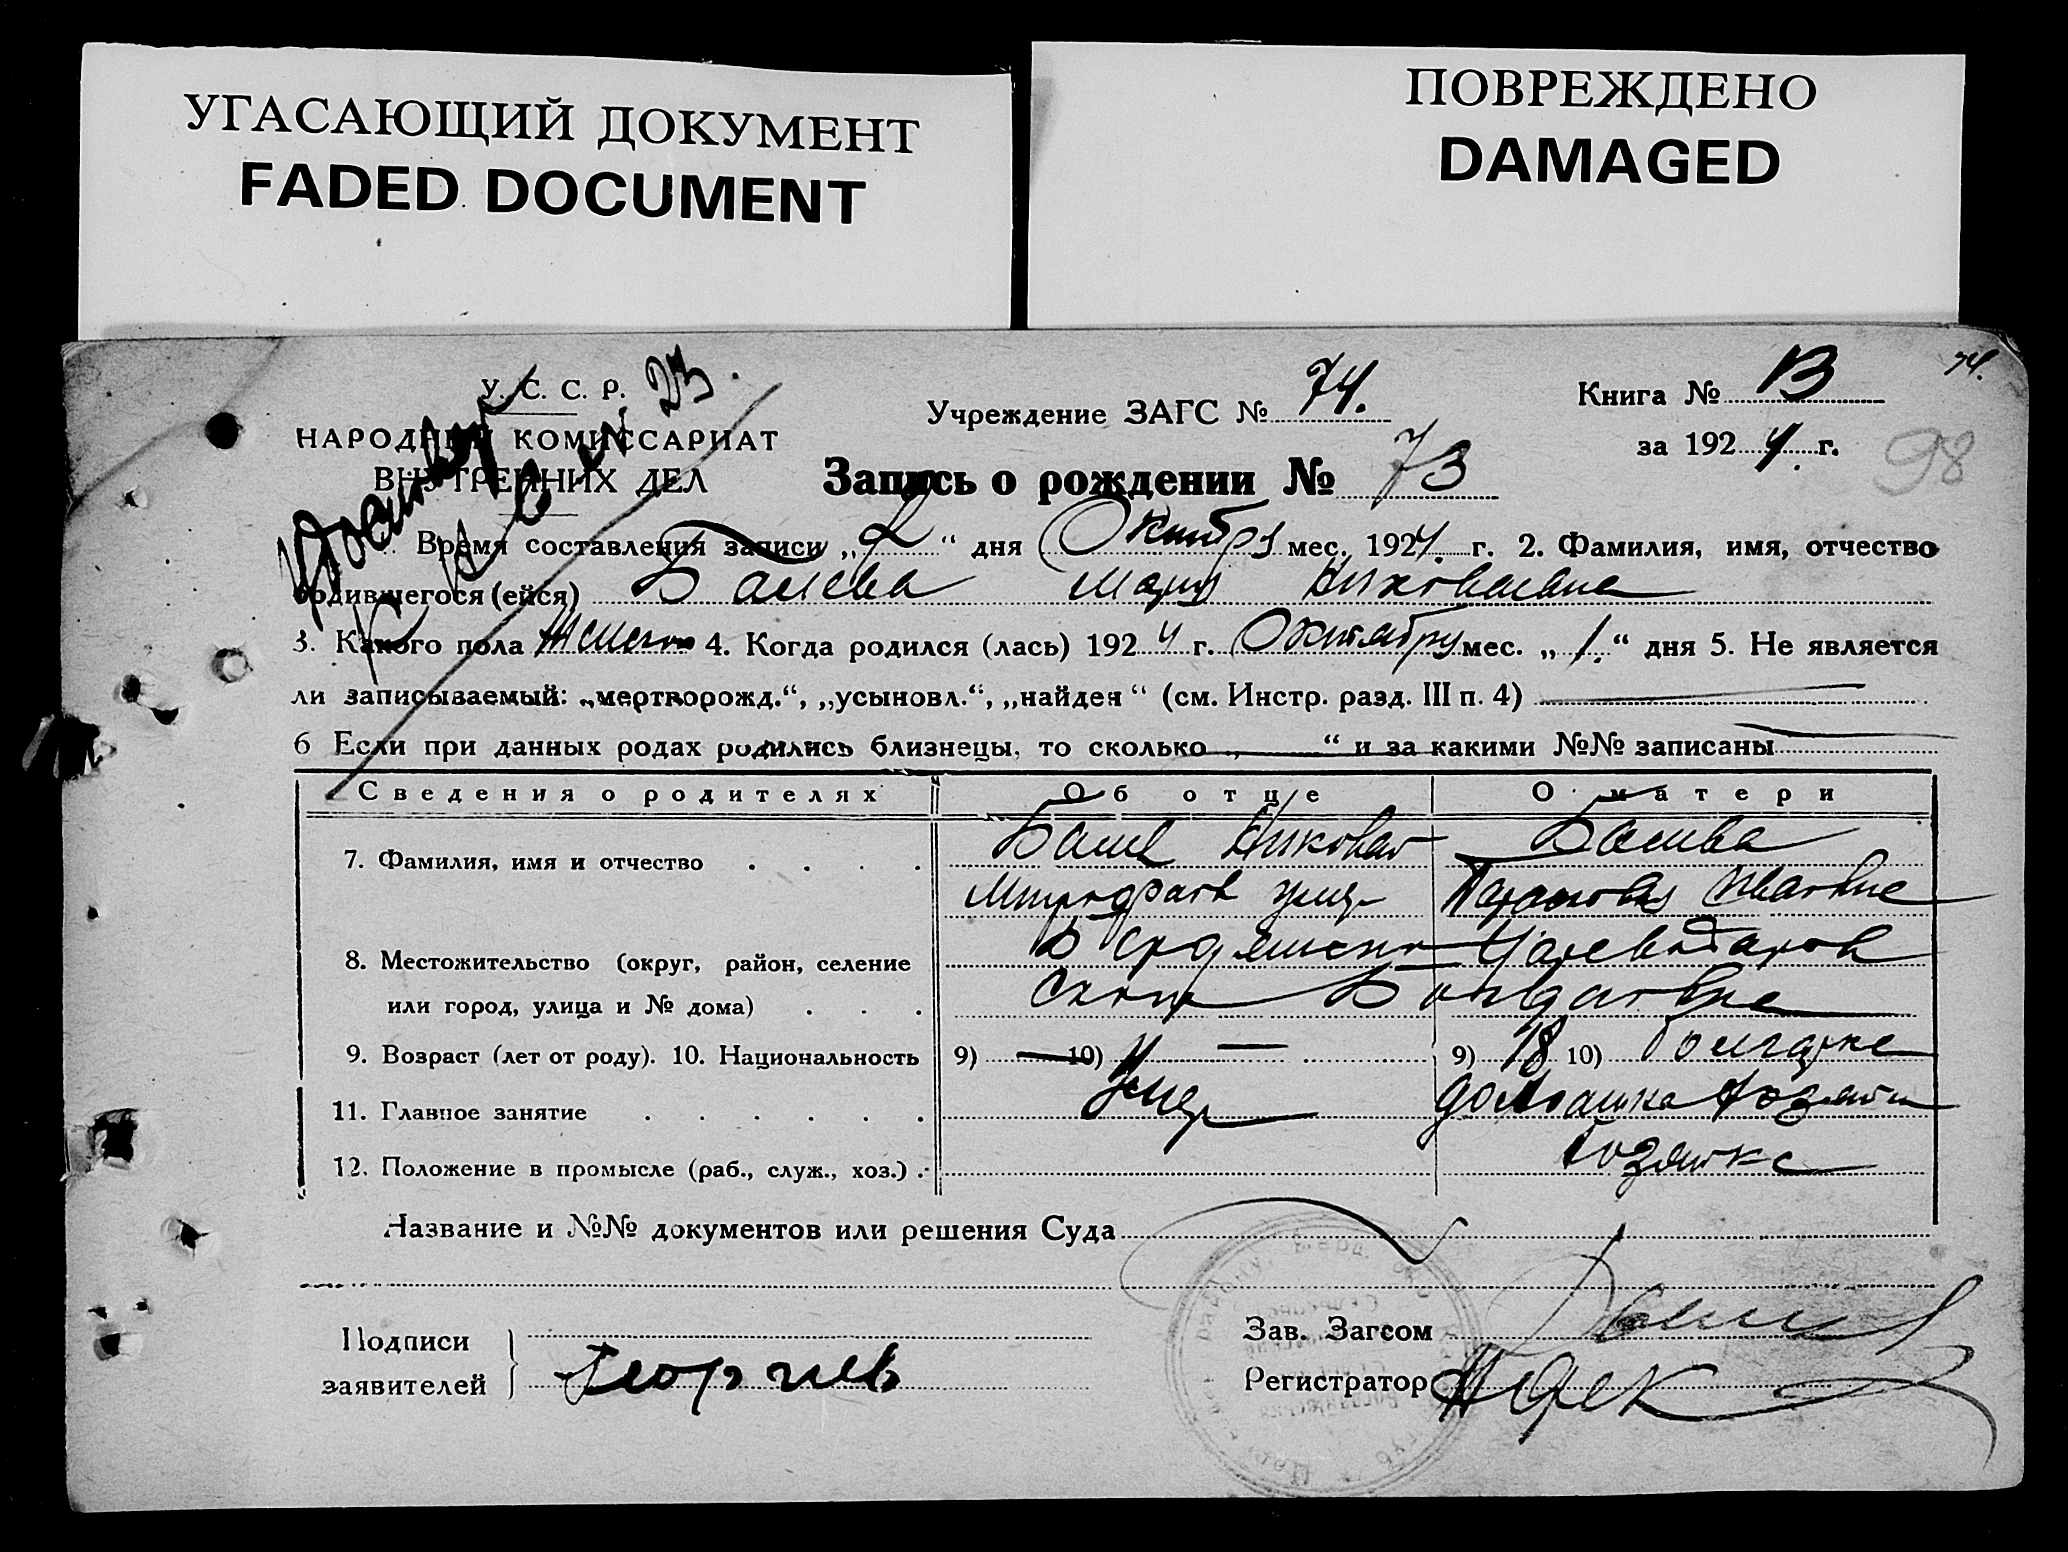 УГАСАЮЩИЙ ДОКУМЕНТ
FADED DOCUMENT
ПОВРЕЖДЕНО
DAMAGED
74.
У. С. С. Р.
НАРОДНЫЙ КОМИССАРИАТ
ВНУТРЕННИХ ДЕЛ
№ 23.
Учреждение ЗАГС № 74.
Книга № В
за 1924. г.
98
Запись о рождении № 73
1. Время составления записи „2“ дня Октября мес. 1924. г. 2. Фамилия, имя, отчество
родившегося (ейся) Балева Мария Николаевна
3. Какого пола женск 4. Когда родился (лась) 1924 г. Октября мес. „1.“ дня 5. Не является
ли записываемый: „мертворожд.“, „усыновл.“, „найден“ (см. Инстр. разд. III п. 4)
6 Если при данных родах родились близнецы, то сколько „ “ и за какими №№ записаны
Сведения о родителях Об отце О матери
7. Фамилия, имя и отчество Балев Николай Балева
Митрофан умер Ивановна
8. Местожительство (округ, район, селение Бердянск Цареводаров
или город, улица и № дома) Богдановка
9. Возраст (лет от роду). 10. Национальность 9) — 10) — 9) 18 10) болгарка
11. Главное занятие умер домашн хозяйк
12. Положение в промысле (раб., служ., хоз.) хозяйка
Название и №№ документов или решения Суда
Подписи
заявителей Георгиев
Зав. Загсом
Регистратор